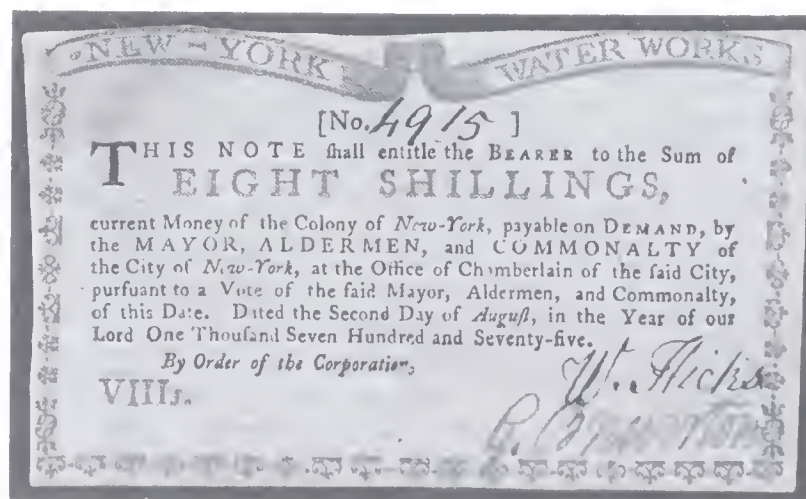 NEW-YORK WATER WORKS
[No. 4915 ]
THIS NOTE ſhall entitle the BEARER to the Sum of
EIGHT SHILLINGS,
current Money of the Colony of New-York, payable on DEMAND, by
the MAYOR, ALDERMEN, and COMMONALTY of
the City of New-York, at the Office of Chamberlain of the ſaid City,
purſuant to a Vote of the ſaid Mayor, Aldermen, and Commonalty,
of this Date. Dated the Second Day of Auguſt, in the Year of our
Lord One Thouſand Seven Hundred and Seventy-five.
By Order of the Corporation,
Wt. Hicks
VIIIs.